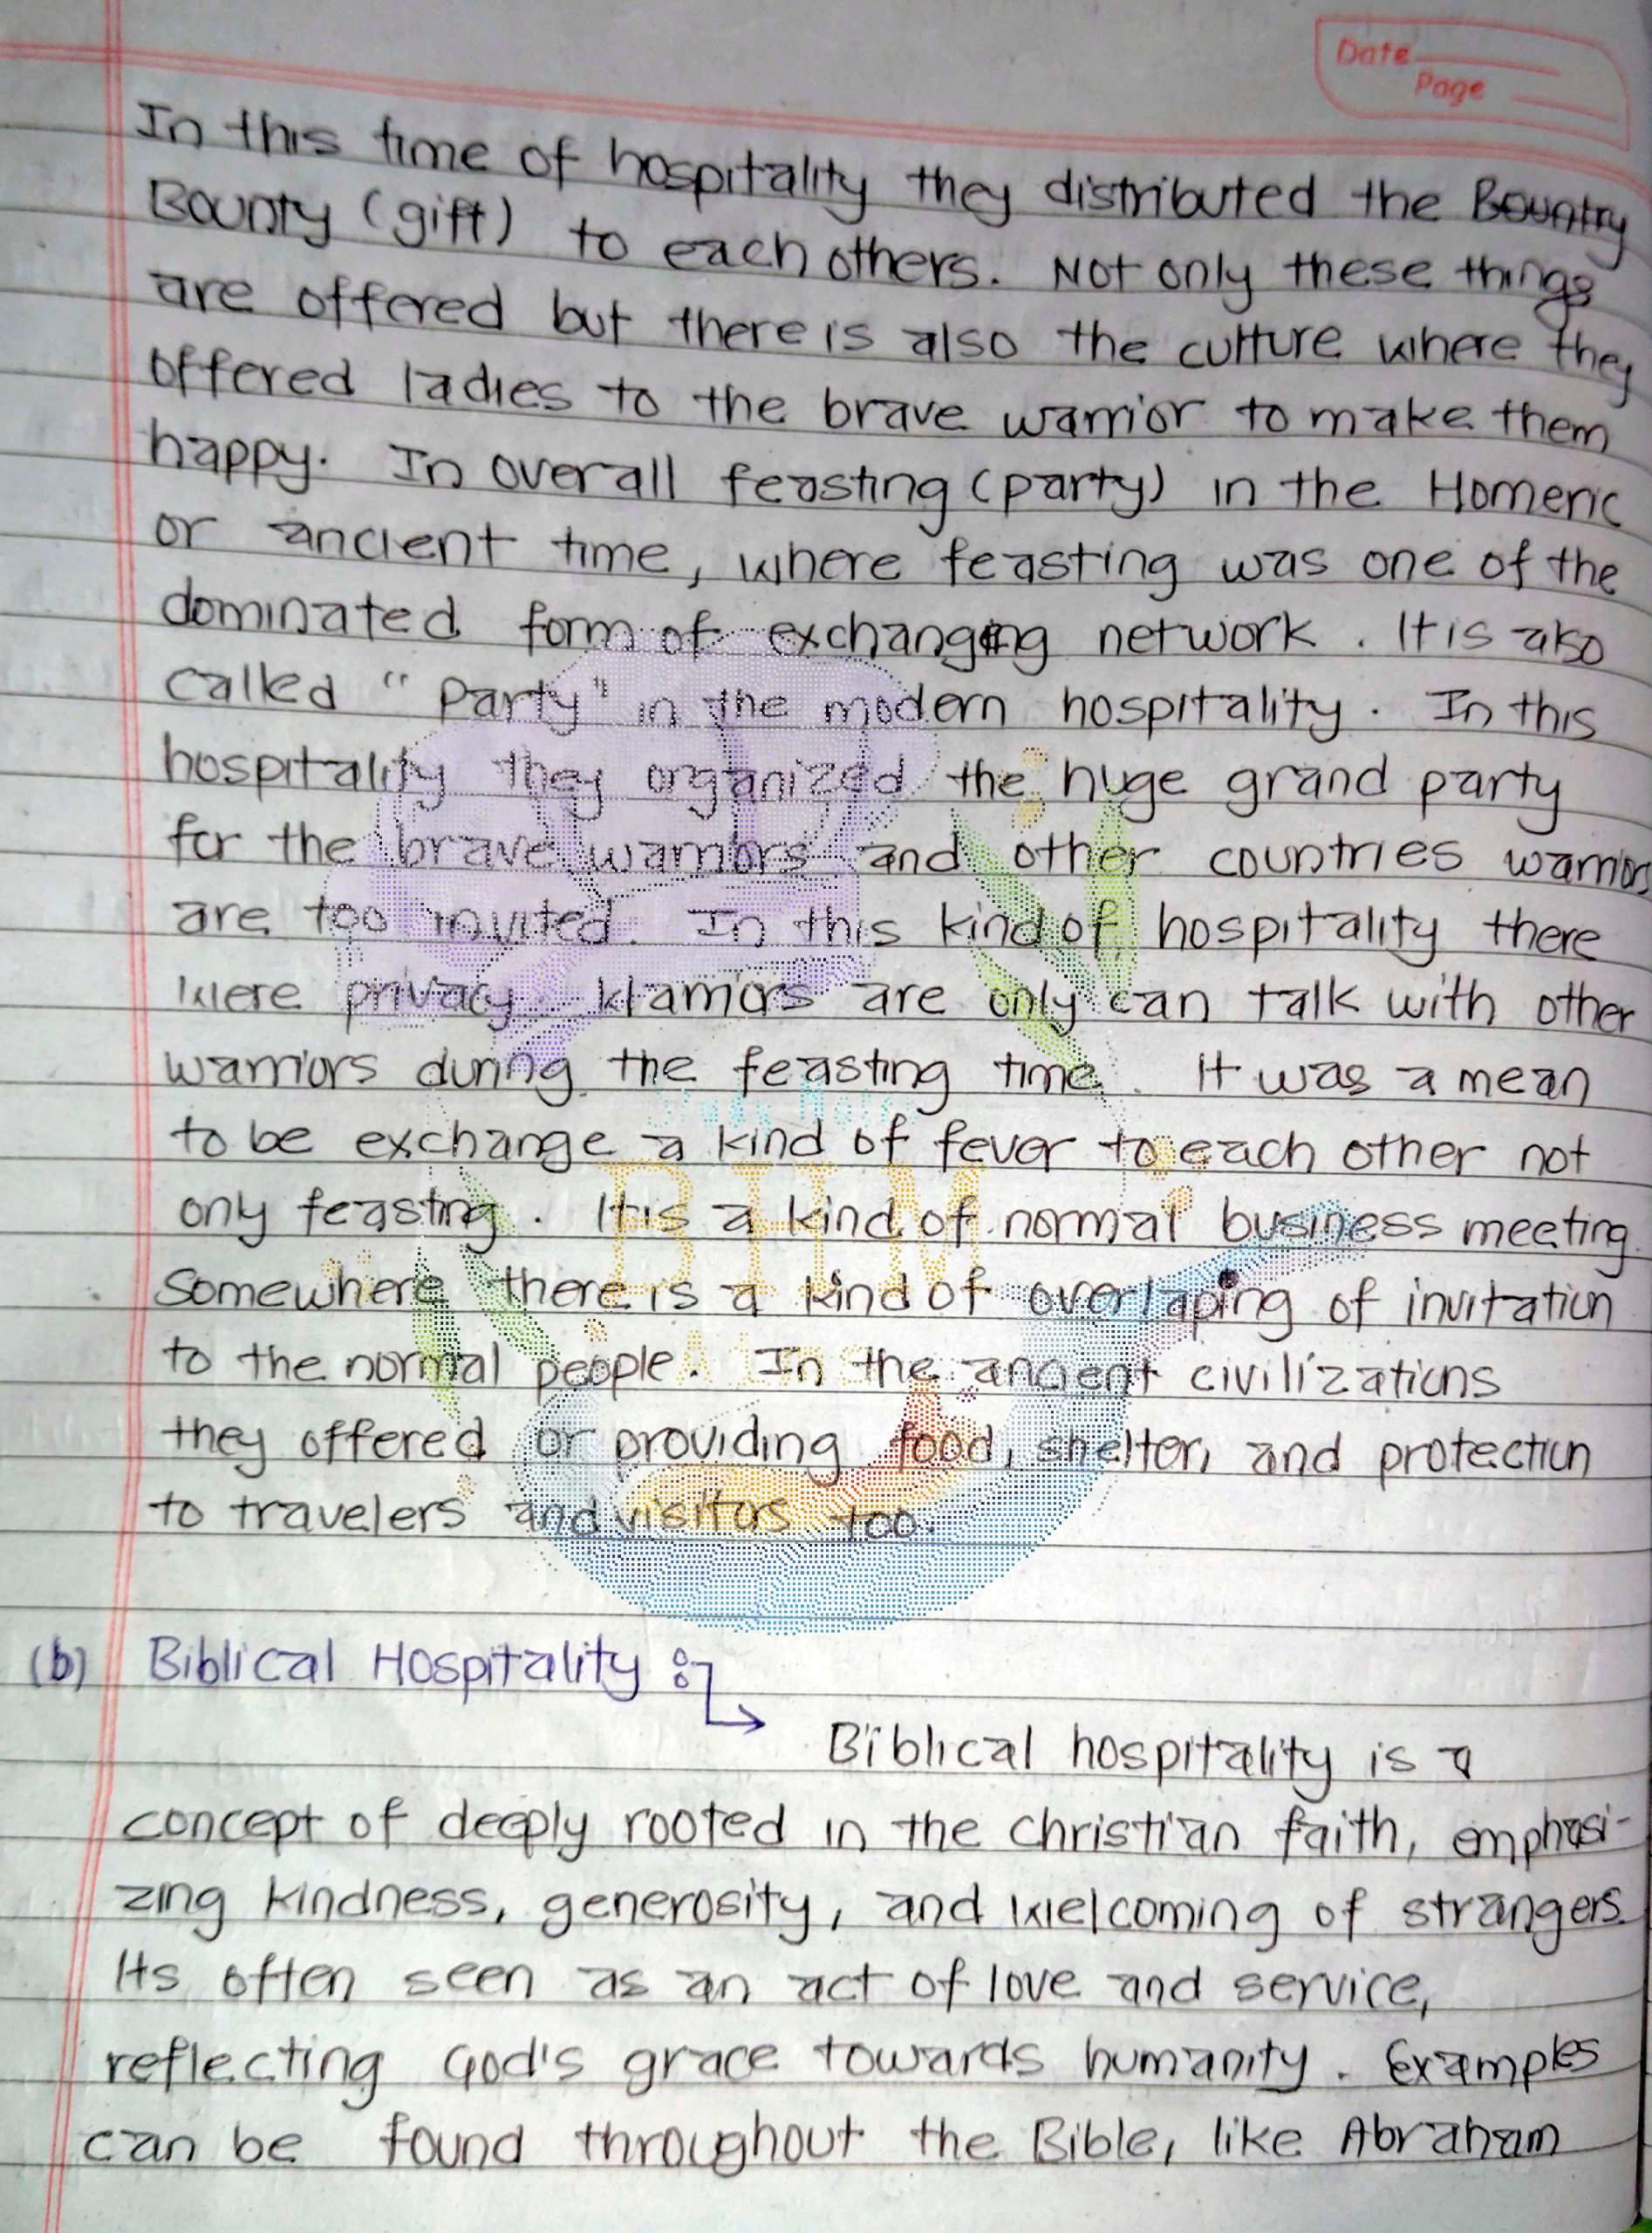 Date
Page
In this time of hospitality they distributed the Bountry
Bounty (gift) to each others. Not only these things
are offered but there is also the culture where they
offered ladies to the brave warrior to make them
happy. In overall feasting (party) in the Homeric
or ancient time, where feasting was one of the
dominated form of exchanging network. It is also
called "Party" in the modern hospitality. In this
hospitality they organized the huge grand party
for the brave warriors and other countries warriors
are too invited. In this kind of hospitality there
were privacy. Warriors are only can talk with other
warriors during the feasting time. It was a mean
to be exchange a kind of fever to each other not
only feasting. It is a kind of normal business meeting.
Somewhere there is a kind of overlaping of invitation
to the normal people. In the ancient civilizations
they offered or providing food, shelter, and protection
to travelers and visitors too.
Study Notes
BHM
(b) Biblical Hospitality :
Biblical hospitality is a
concept of deeply rooted in the christian faith, emphasi-
zing kindness, generosity, and welcoming of strangers.
Its often seen as an act of love and service,
reflecting God's grace towards humanity. Examples
can be found throughout the Bible, like Abraham